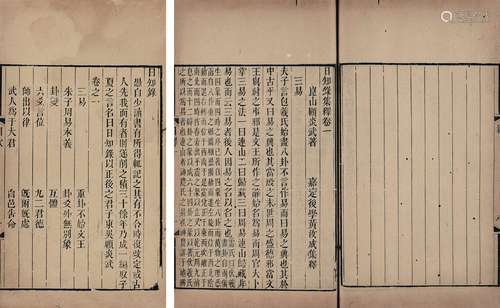 日知錄
愚自少讀書有所得輒記之其有不合時復改定或古
人先我而有者則遂削之積三十餘年乃成一編取子
夏之言名曰日知錄以正後之君子東吳顧炎武
卷之一
三易 重卦不始文王
朱子周易本義 卦爻外無別象
卦變 互體
六爻言位 九二君德
師出以律 既雨既處
武人爲于大君 自邑告命
日知錄集釋卷一
崑山顧炎武著 嘉定後學黃汝成集釋
三易
夫子言包羲氏始畫八卦不言作易而曰易之興也其於
中古乎又曰易之興也其當殷之末世周之盛德邪當文
王與紂之事邪是文王所作之辭始名爲易而周官大卜
掌三易之法一曰連山二曰歸藏三曰周易連山歸藏非
易也而云三易者後人因易之名以名之也